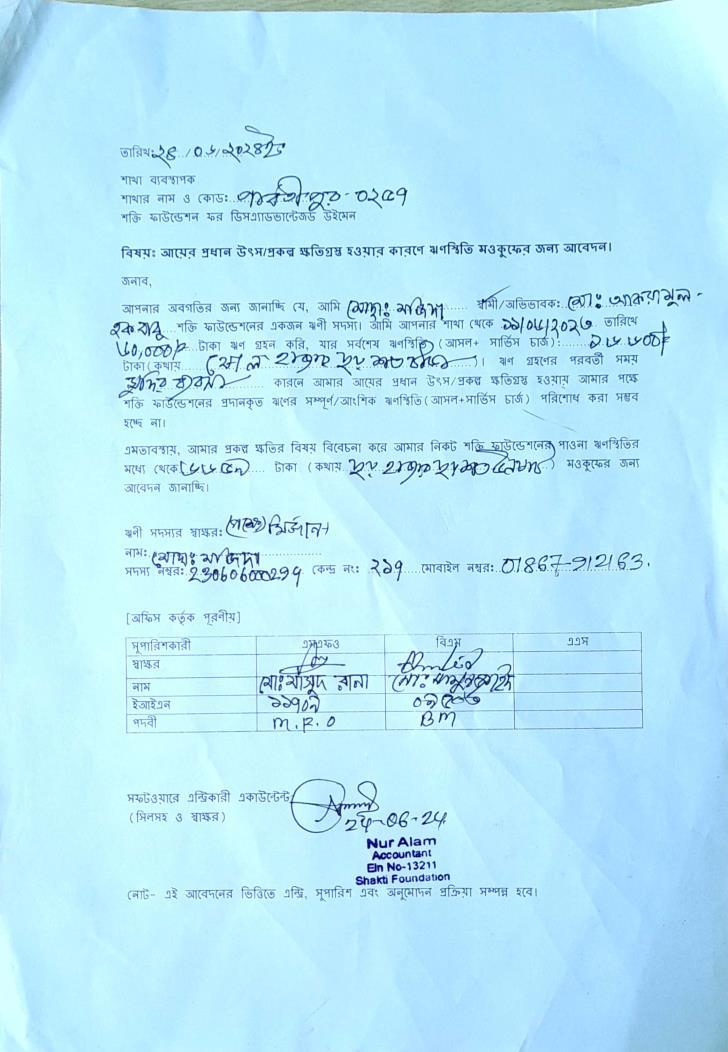 তারিখ: ২৪/০৬/২০২৪ইং
শাখা ব্যবস্থাপক
শাখার নাম ও কোড: পার্বতীপুর - ০২৫৭
শক্তি ফাউন্ডেশন ফর ডিসএ্যাডভান্টেজড উইমেন
বিষয়: আয়ের প্রধান উৎস/প্রকল্প ক্ষতিগ্রস্থ হওয়ার কারণে ঋণস্থিতি মওকুফের জন্য আবেদন।
জনাব,
আপনার অবগতির জন্য জানাচ্ছি যে, আমি মোছাঃ মর্জিদা স্বামী/অভিভাবক: মোঃ আকরামুল -
হক বাবু শক্তি ফাউন্ডেশনের একজন ঋণী সদস্য। আমি আপনার শাখা থেকে তারিখে
৬০,০০০/= টাকা ঋণ গ্রহন করি, যার সর্বশেষ ঋণস্থিতি (আসল+ সার্ভিস চার্জ): ১৬৬০০/=
টাকা (কথায় ষোল হাজার ছয় শত টাকা)। ঋণ গ্রহণের পরবর্তী সময়
মুদির ব্যবসা কারনে আমার আয়ের প্রধান উৎস/প্রকল্প ক্ষতিগ্রস্থ হওয়ায় আমার পক্ষে
শক্তি ফাউন্ডেশনের প্রদানকৃত ঋণের সম্পূর্ণ/আংশিক ঋণস্থিতি (আসল+সার্ভিস চার্জ) পরিশোধ করা সম্ভব
হচ্ছে না।
এমতাবস্থায়, আমার প্রকল্প ক্ষতির বিষয় বিবেচনা করে আমার নিকট শক্তি ফাউন্ডেশনের পাওনা ঋণস্থিতির
মধ্যে থেকে টাকা (কথায় ছয় হাজার ছয়শত) মওকুফের জন্য
আবেদন জানাচ্ছি।
ঋণী সদস্যর স্বাক্ষর:
নাম: মোছাঃ মর্জিদা
সদস্য নম্বর: 23060600029৭ কেন্দ্র নং: ২১৭ মোবাইল নম্বর: 01867-912163.
[অফিস কর্তৃক পূরণীয়]
সুপারিশকারী এসএফও বিএম এএস
স্বাক্ষর
নাম মোঃ মাসুদ রানা
ইআইএন
পদবী M.F.O BM
সফটওয়ারে এন্ট্রিকারী একাউন্টেন্ট
(সিলসহ ও স্বাক্ষর) 24-06-24
Nur Alam
Accountant
Ein No-13211
Shakti Foundation
নোট- এই আবেদনের ভিত্তিতে এন্ট্রি, সুপারিশ এবং অনুমোদন প্রক্রিয়া সম্পন্ন হবে।